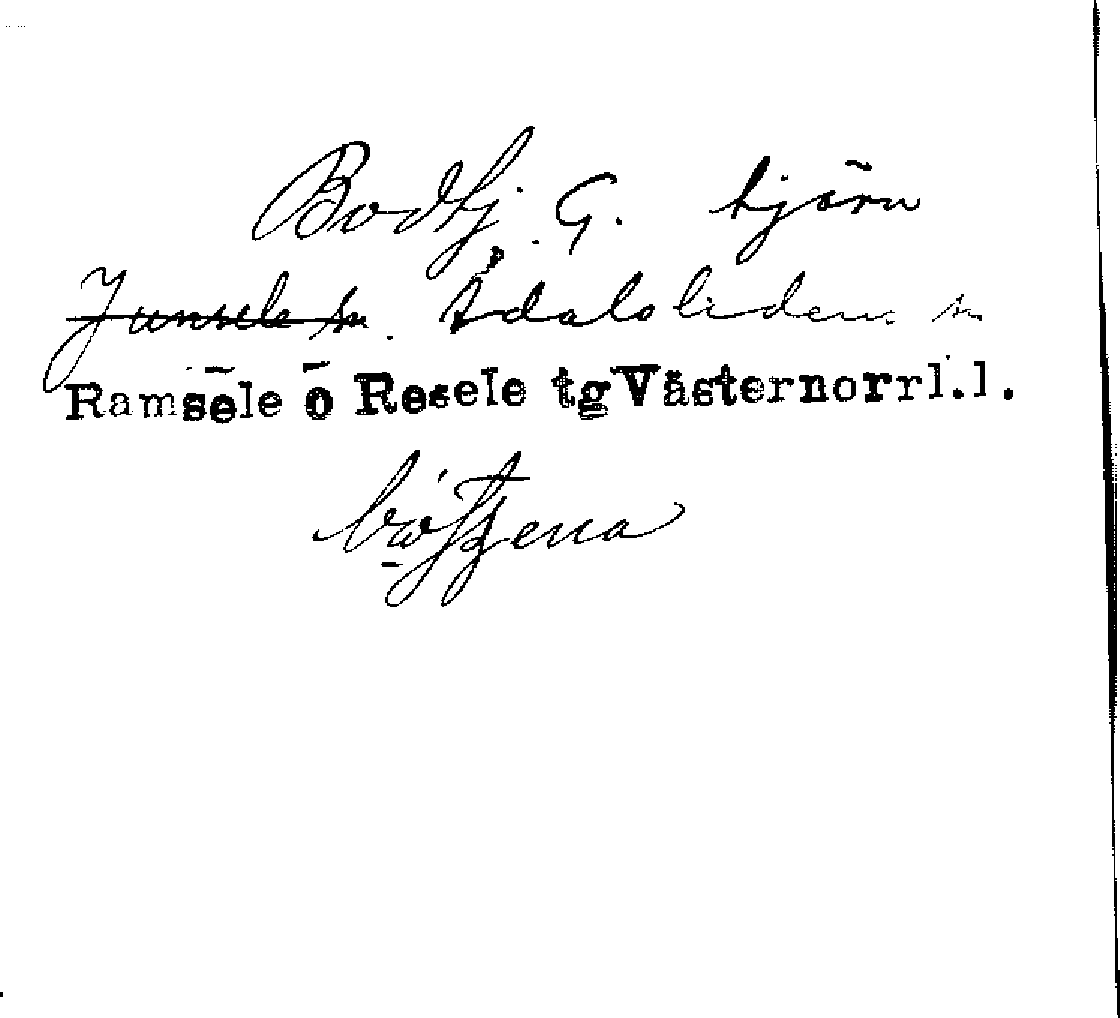 Bodtj. G. tjärn
Junsele sn. Ådalslidens sn
Ramsele o Resele tg Västernorrl.l.